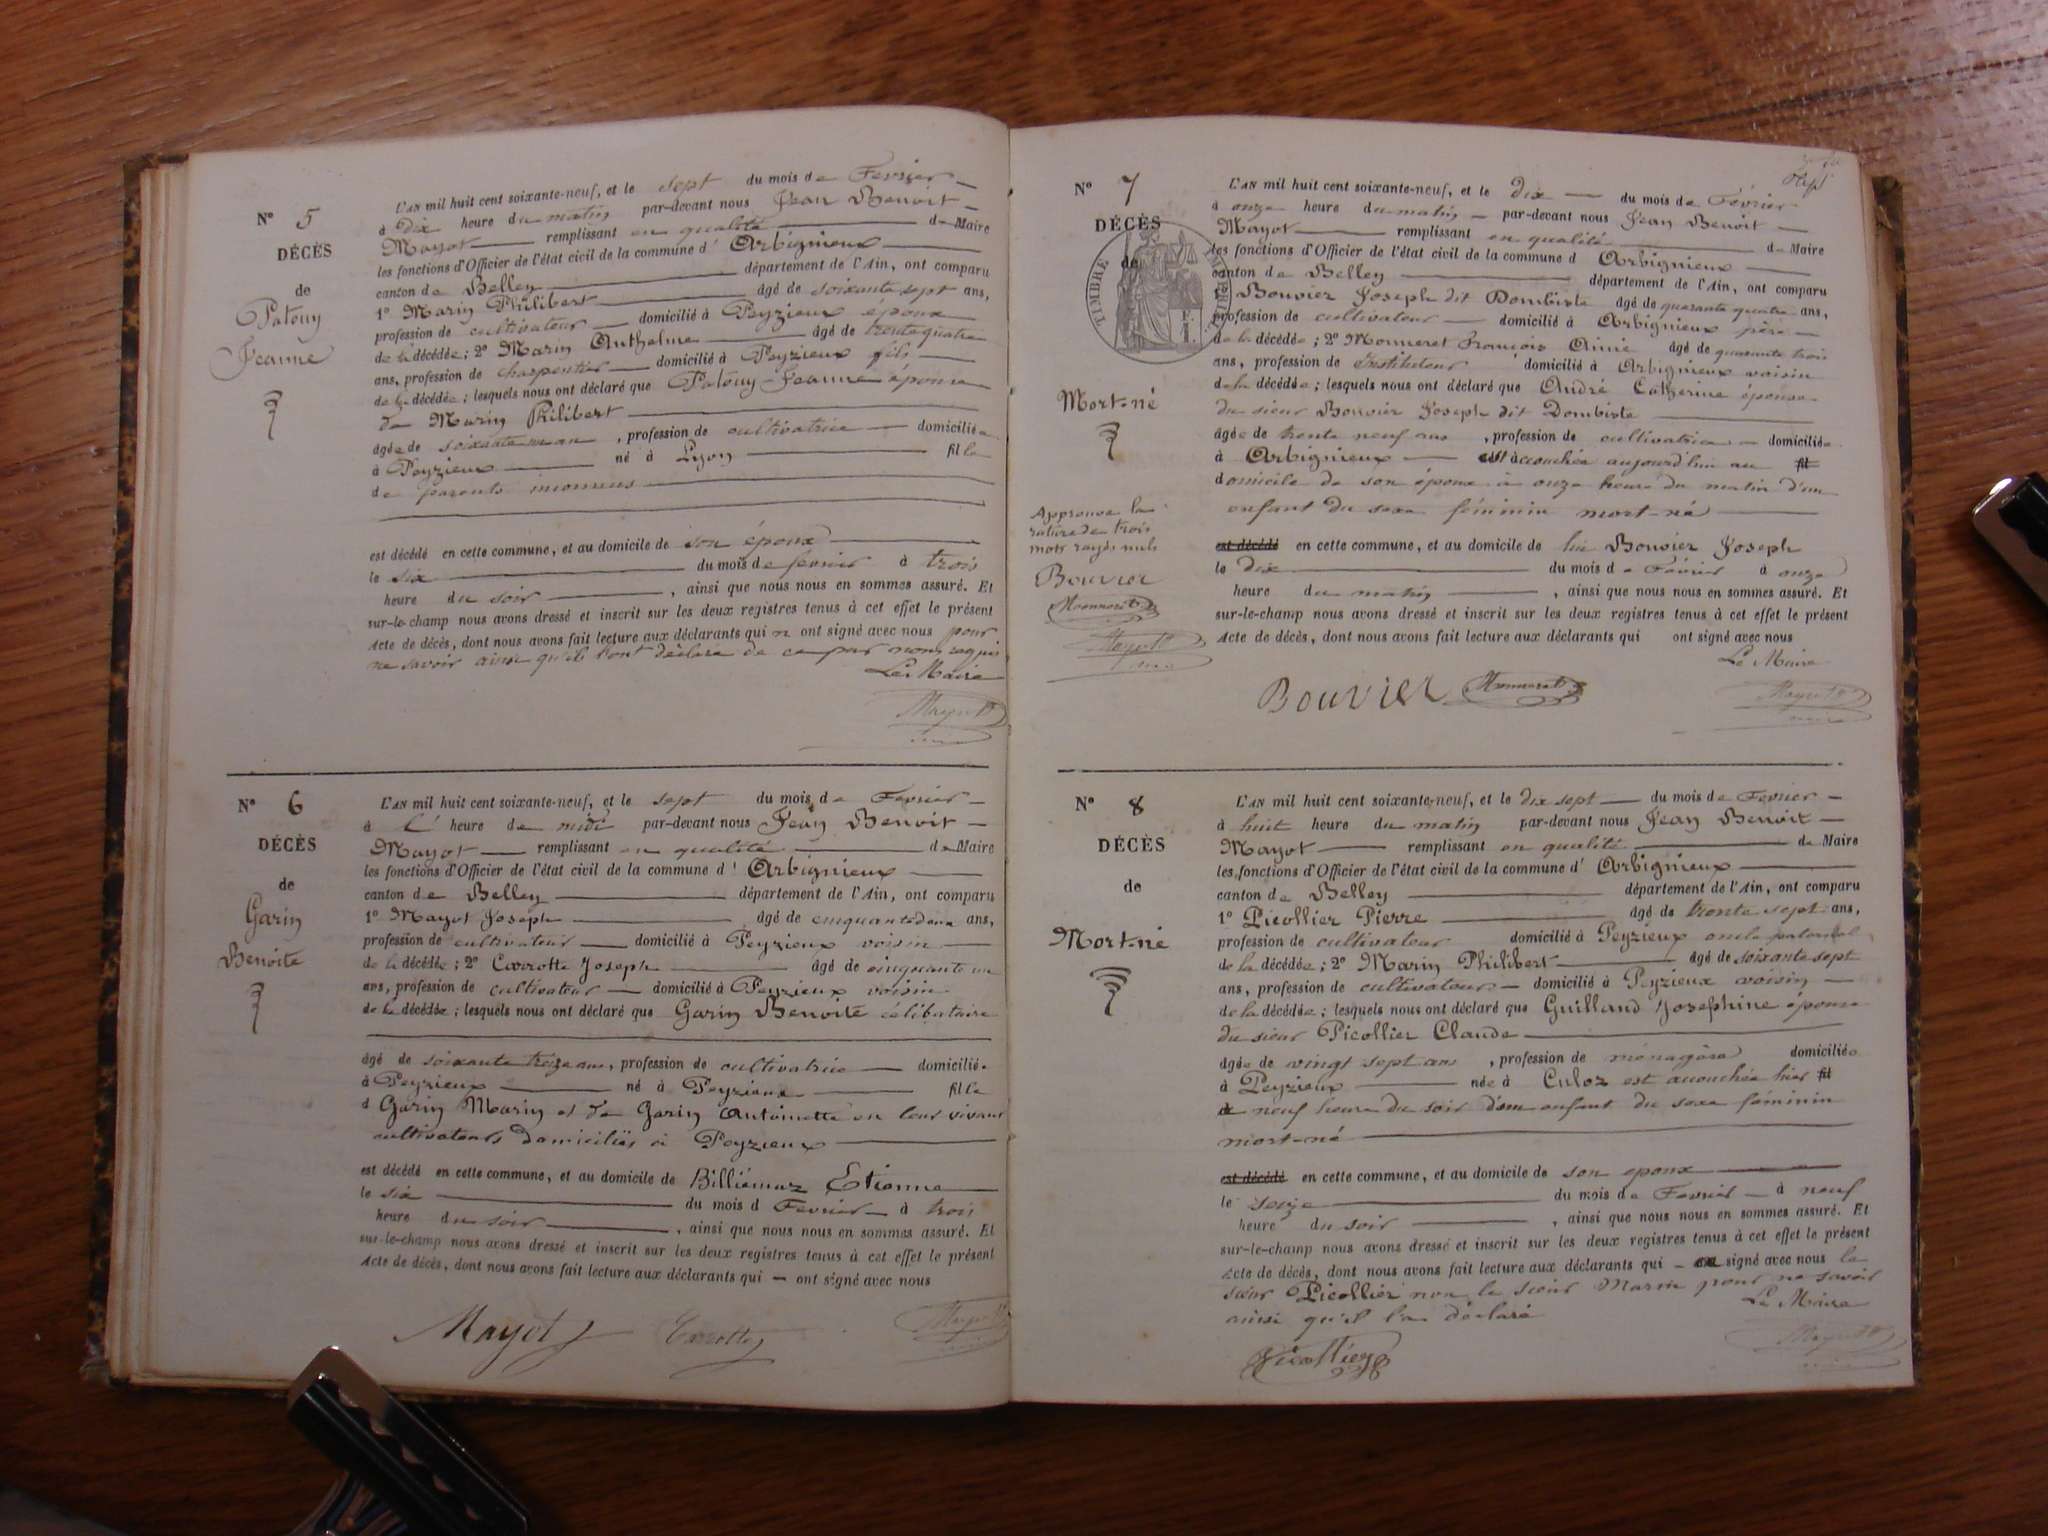 N° 5
DÉCÈS
de
Patouy
Jeanne
L'AN mil huit cent soixante-neuf, et le sept du mois de Février
à dix heure du matin par-devant nous Jean Benoit
Mayot remplissant en qualité de Maire
les fonctions d'Officier de l'état civil de la commune d' Arbignieux
canton de Belley département de l'Ain, ont comparu
1° Marin Philibert âgé de soixante sept ans,
profession de cultivateur domicilié à Peyzieux époux
de la décédée ; 2° Marin Anthelme âgé de trente quatre
ans, profession de charpentier domicilié à Peyzieux fils
de la décédée ; lesquels nous ont déclaré que Patouy Jeanne épouse
de Marin Philibert
âgée de soixante un an , profession de cultivatrice domiciliée
à Peyzieux né à Lyon fille
de parents inconnus
est décédé en cette commune, et au domicile de son époux
le six du mois de fevrier à trois
heure du soir , ainsi que nous nous en sommes assuré. Et
sur-le-champ nous avons dressé et inscrit sur les deux registres tenus à cet effet le présent
Acte de décès, dont nous avons fait lecture aux déclarants qui n ont signé avec nous pour
ne savoir ainsi qu'ils l'ont déclaré de ce par nous requis
Le Maire
Mayot
N° 6
DÉCÈS
de
Garin
Benoite
L'AN mil huit cent soixante-neuf, et le sept du mois de Février
à l' heure de midi par-devant nous Jean Benoit
Mayot remplissant en qualité de Maire
les fonctions d'Officier de l'état civil de la commune d' Arbignieux
canton de Belley département de l'Ain, ont comparu
1° Mayot Joseph âgé de cinquante deux ans,
profession de cultivateur domicilié à Peyzieux voisin
de la décédée ; 2° Carrotte Joseph âgé de cinquante un
ans, profession de cultivateur domicilié à Peyzieux voisin
de la décédée ; lesquels nous ont déclaré que Garin Benoite celibataire
âgé de soixante treize ans, profession de cultivatrice domiciliée
à Peyzieux né à Peyzieux fille
d Garin Marin et de Garin Antoinette en leur vivant
cultivateurs domiciliés à Peyzieux
est décédé en cette commune, et au domicile de Billiémaz Etienne
le six du mois d Fevrier à trois
heure du soir , ainsi que nous nous en sommes assuré. Et
sur-le-champ nous avons dressé et inscrit sur les deux registres tenus à cet effet le présent
Acte de décès, dont nous avons fait lecture aux déclarants qui ont signé avec nous
Mayot Carrotte Mayot
Sept
N° 7
DÉCÈS
de
TIMBRE
Mort-né
Approuve la
rature de trois
mots rayés nuls
Bouvier
Monneret
Mayot
L'AN mil huit cent soixante-neuf, et le dix du mois de Février
à onze heure du matin par-devant nous Jean Benoit
Mayot remplissant en qualité de Maire
les fonctions d'Officier de l'état civil de la commune d Arbignieux
canton de Belley département de l'Ain, ont comparu
1° Bouvier Joseph dit Dombiste âgé de quarante quatre ans,
profession de cultivateur domicilié à Arbignieux père
de la décédée ; 2° Monneret François Aimé âgé de quarante trois
ans, profession de Instituteur domicilié à Arbignieux voisin
de la décédée ; lesquels nous ont déclaré que André Catherine épouse
du sieur Bouvier Joseph dit Dombiste
âgée de trente neuf ans , profession de cultivatrice domiciliée
à Arbignieux est accouchée aujourd'hui au fil
domicile de son époux à onze heure du matin d'un
enfant du sexe féminin mort-né
est décédé en cette commune, et au domicile de lui Bouvier Joseph
le dix du mois de Février à onze
heure du matin , ainsi que nous nous en sommes assuré. Et
sur-le-champ nous avons dressé et inscrit sur les deux registres tenus à cet effet le présent
Acte de décès, dont nous avons fait lecture aux déclarants qui ont signé avec nous
Le Maire
Bouvier Monneret Mayot
N° 8
DÉCÈS
de
Mort-né
L'AN mil huit cent soixante-neuf, et le dix sept du mois de Fevrier
à huit heure du matin par-devant nous Jean Benoit
Mayot remplissant en qualité de Maire
les fonctions d'Officier de l'état civil de la commune d' Arbignieux
canton de Belley département de l'Ain, ont comparu
1° Picollier Pierre âgé de trente sept ans,
profession de cultivateur domicilié à Peyzieux oncle paternel
de la décédée ; 2° Marin Philibert âgé de soixante sept
ans, profession de cultivateur domicilié à Peyzieux voisin
de la décédée ; lesquels nous ont déclaré que Guilland Josephine épouse
du sieur Picollier Claude
âgée de vingt sept ans , profession de ménagère domiciliée
à Peyzieux née à Culoz est accouchée hier fil
de neuf heure du soir d'un enfant du sexe féminin
mort-né
est décédé en cette commune, et au domicile de son epoux
le seize du mois de Fevrier à neuf
heure du soir , ainsi que nous nous en sommes assuré. Et
sur-le-champ nous avons dressé et inscrit sur les deux registres tenus à cet effet le présent
Acte de décès, dont nous avons fait lecture aux déclarants qui a signé avec nous le
sieur Picollier non le sieur Marin pour ne savoir
ainsi qu'il l'a déclaré Le Maire
Picollier Mayot